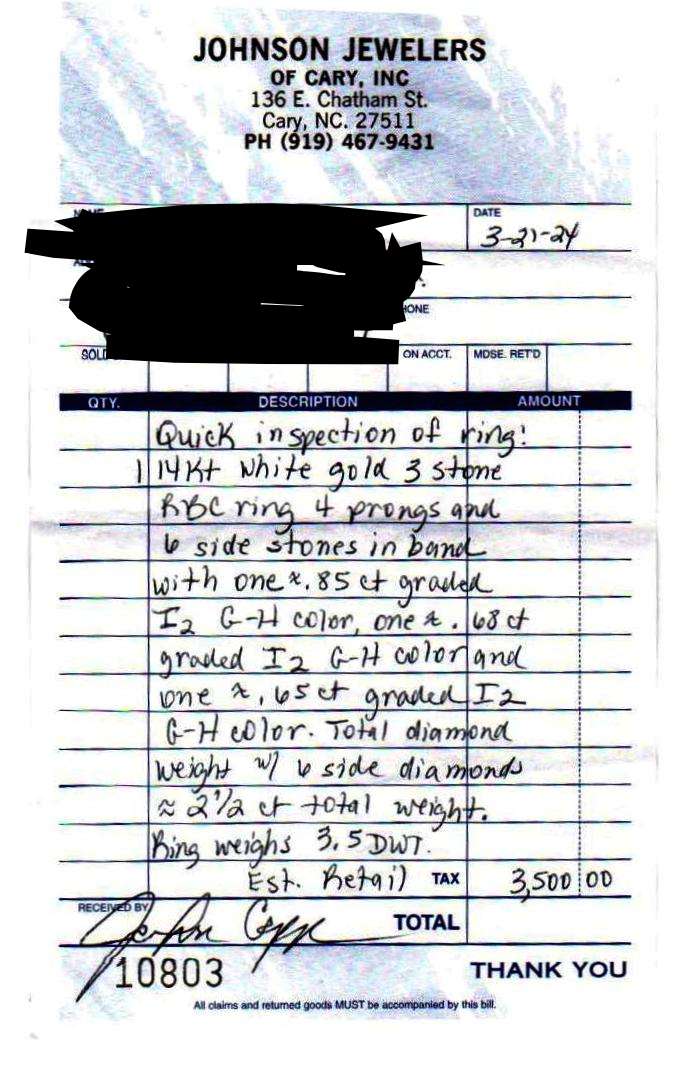 JOHNSON JEWELERS
OF CARY, INC
136 E. Chatham St.
Cary, NC. 27511
PH (919) 467-9431
DATE
3-21-24
SOLD
ON ACCT. MDSE. RET'D
QTY. DESCRIPTION AMOUNT
Quick inspection of ring!
1 14Kt white gold 3 stone
RBC ring 4 prongs and
6 side stones in band
with one ≈.85 ct graded
I2 G-H color, one ≈ .68 ct
graded I2 G-H color and
one ≈ .65 ct graded I2
G-H color. Total diamond
weight w/ 6 side diamonds
≈ 2 1/2 ct total weight.
Ring weighs 3.5 DWT.
Est. Retail TAX 3,500 00
RECEIVED BY
TOTAL
10803 THANK YOU
All claims and returned goods MUST be accompanied by this bill.